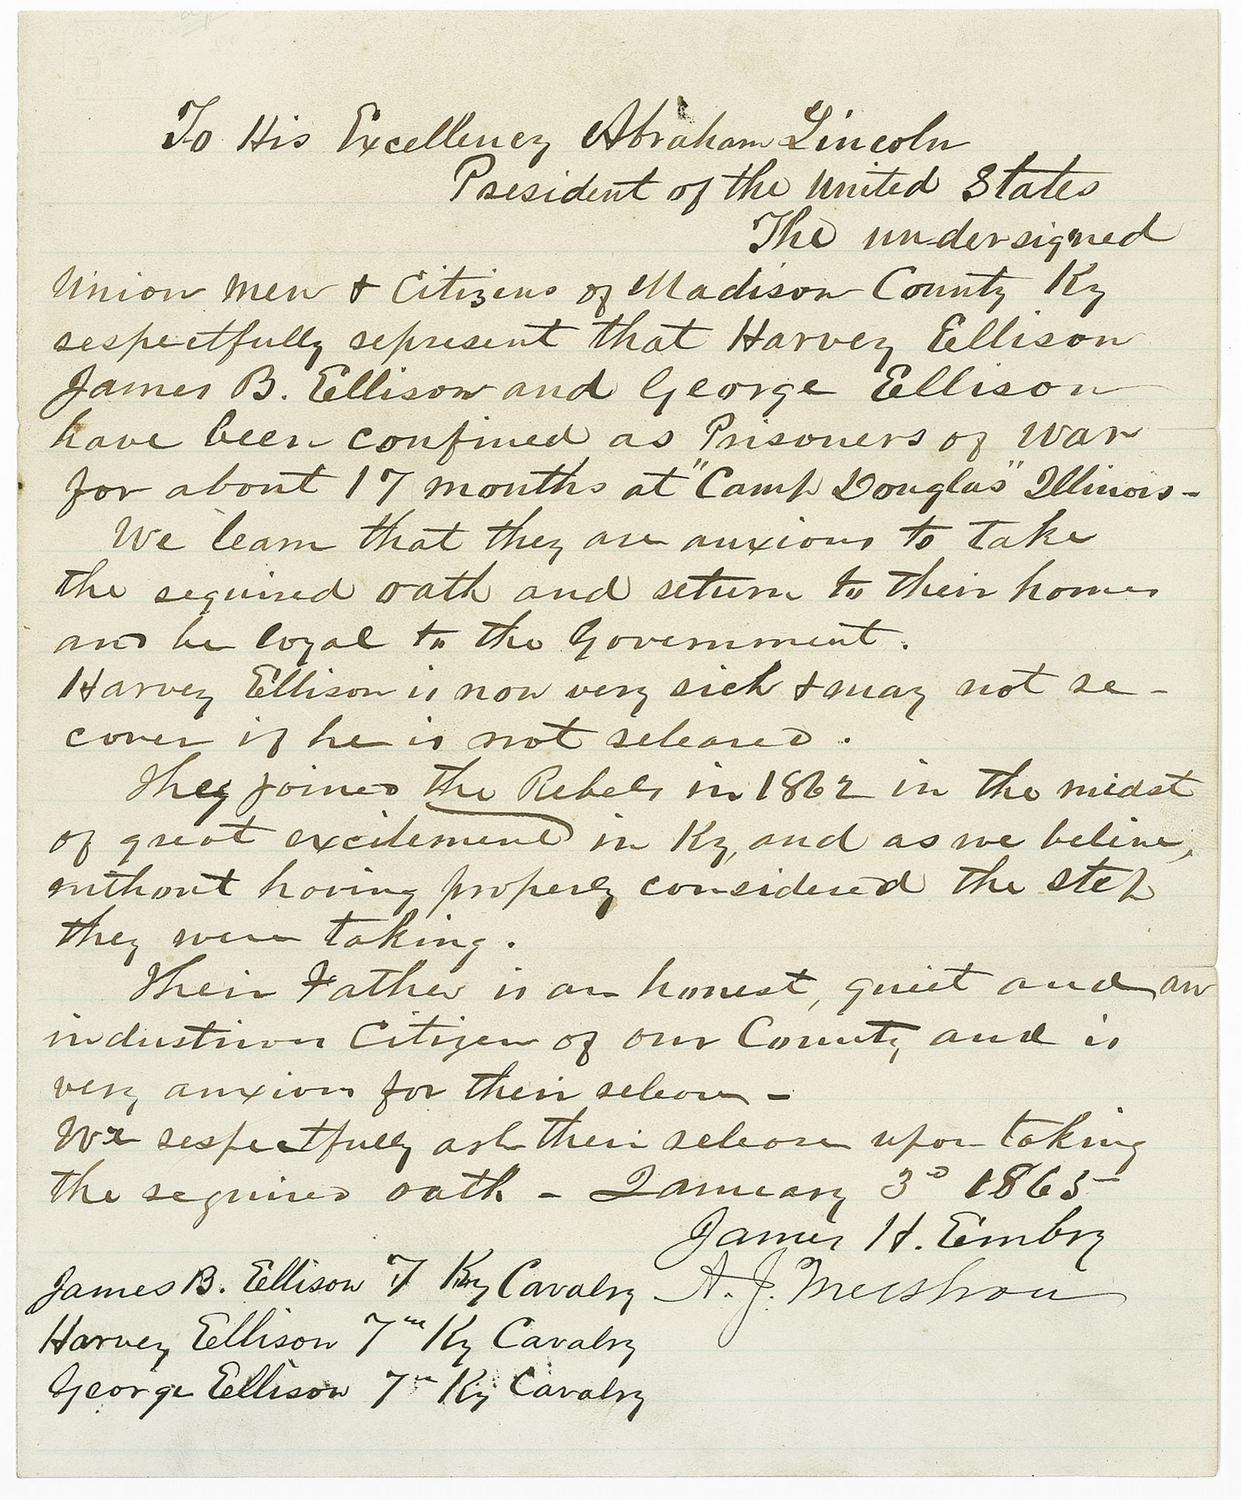 To His Excellency Abraham Lincoln
President of the United States
The undersigned
Union Men & Citizens of Madison County Ky
respectfully represent that Harvey Ellison
James B. Ellison and George Ellison
have been confined as Prisoners of War
for about 17 months at "Camp Douglas" Illinois -
We learn that they are anxious to take
the required oath and return to their homes
and be loyal to the Government.
Harvey Ellison is now very sick & may not re -
cover if he is not released.
They joined the Rebels in 1862 in the midst
of great excitement in Ky, and as we believe,
without having properly considered the step
they were taking.
Their Father is an honest, quiet and an
industrious Citizen of our County and is
very anxious for their release -
We respectfully ask their release upon taking
the required oath - January 3d 1865
James H. Embry
James B. Ellison 7 Ky Cavalry A. J.
Harvey Ellison 7th Ky Cavalry
George Ellison 7th Ky Cavalry